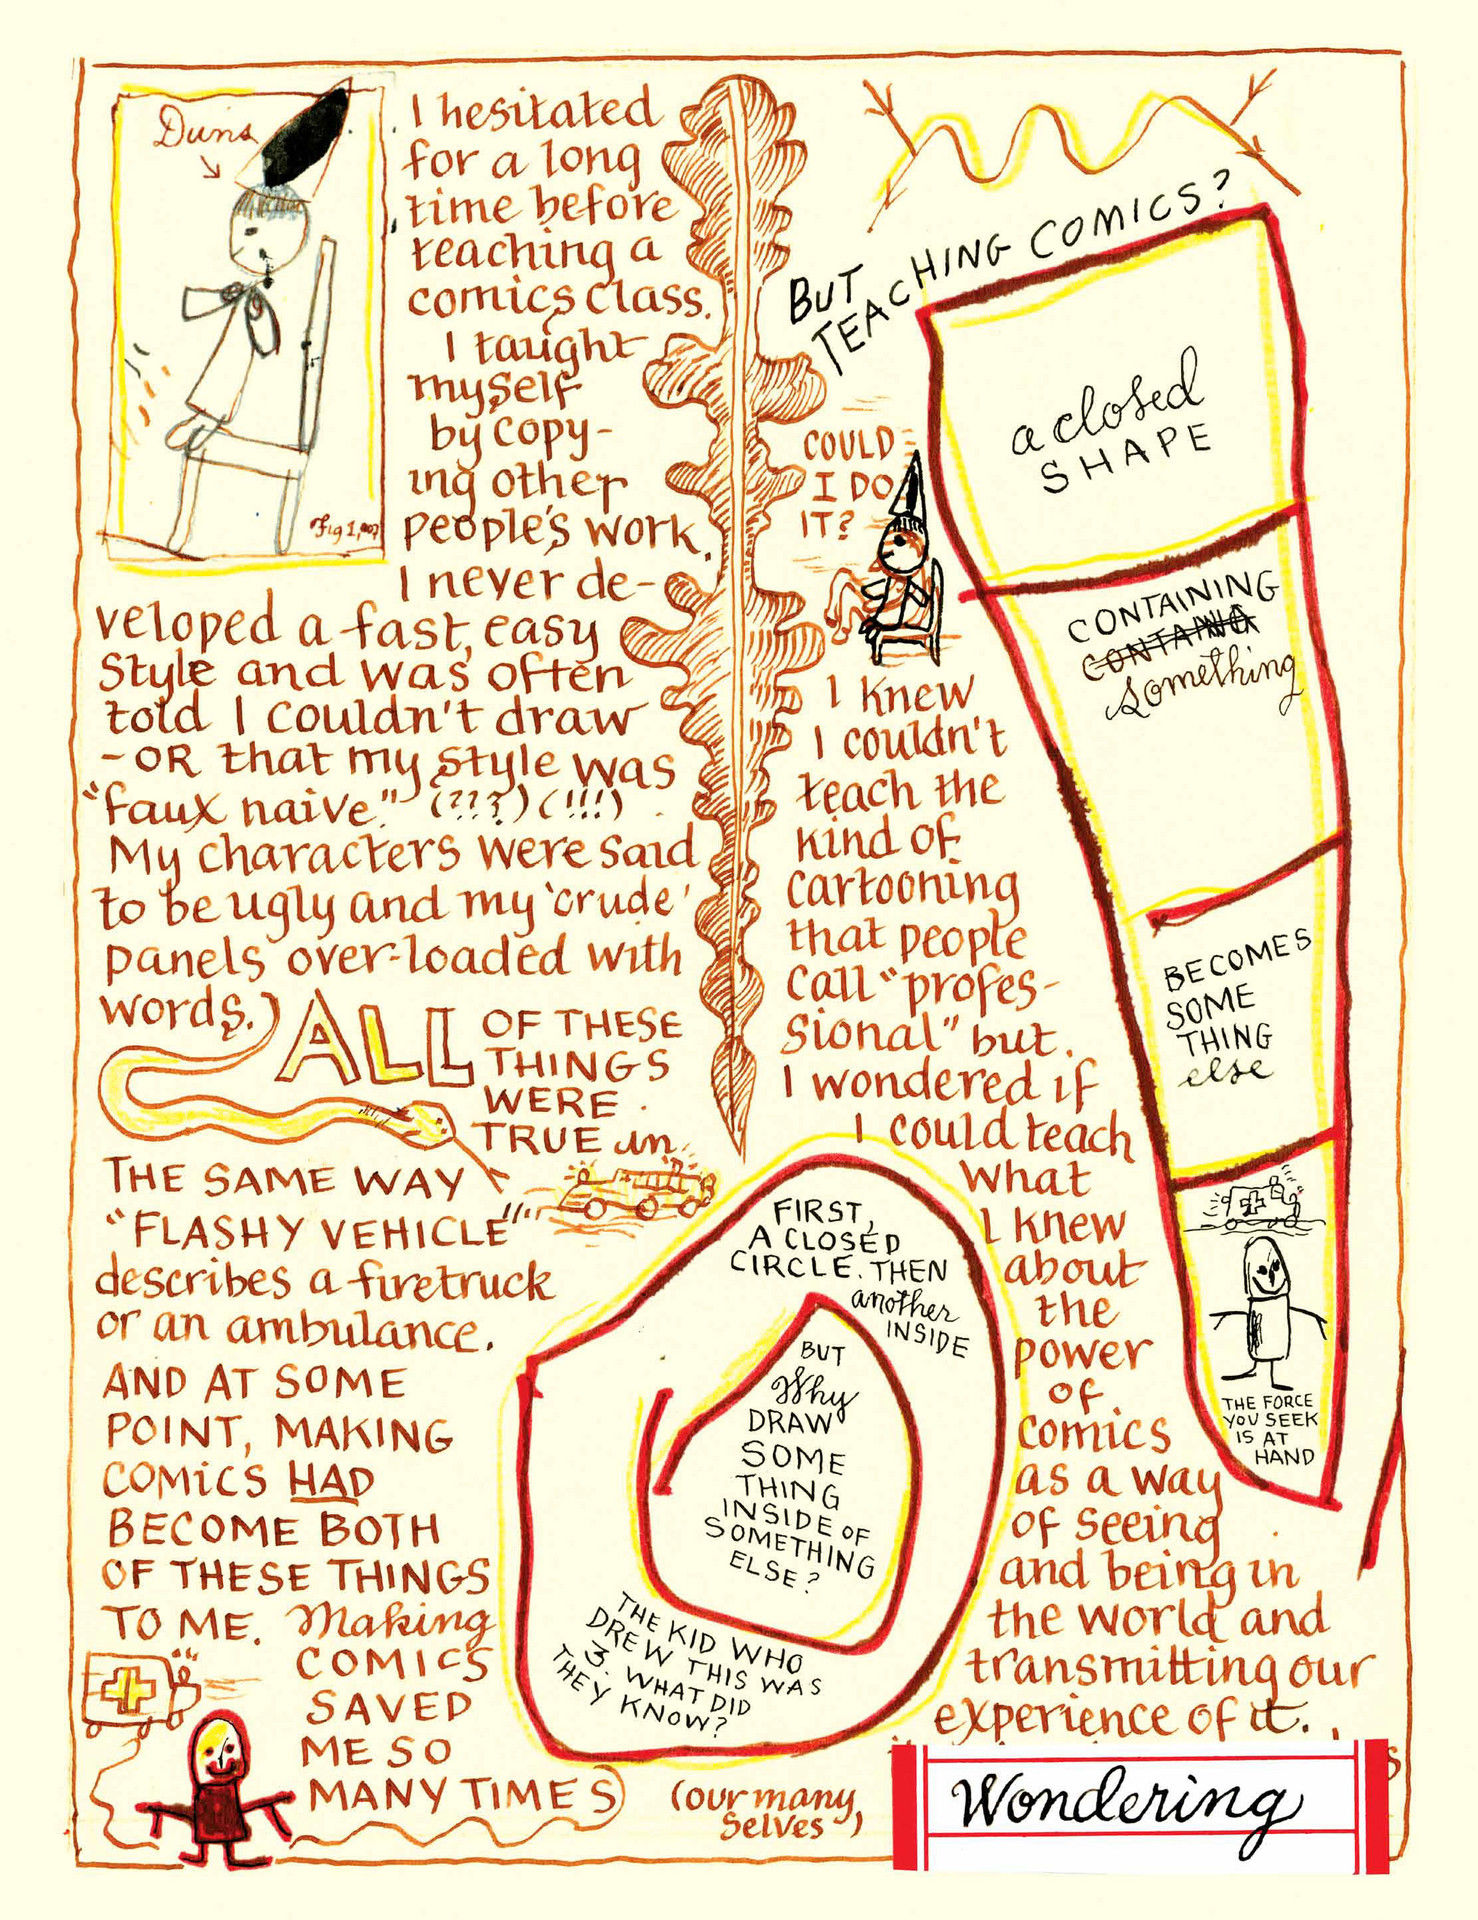 Duns
Fig 1,007
I hesitated
for a long
time before
teaching a
comics class.
I taught
myself
by copy-
ing other
people's work.
I never de-
veloped a fast, easy
style and was often
told I couldn't draw
-OR that my style was
"faux naive." (???) (!!!)
My characters were said
to be ugly and my 'crude'
panels over-loaded with
words.)
ALL OF THESE
THINGS
WERE
TRUE in
THE SAME WAY
"FLASHY VEHICLE"
describes a firetruck
or an ambulance.
AND AT SOME
POINT, MAKING
COMICS HAD
BECOME BOTH
OF THESE THINGS
TO ME. Making
COMICS
SAVED
ME SO
MANY TIMES)
BUT
TEACHING COMICS?
COULD
I DO
IT?
I knew
I couldn't
teach the
kind of
cartooning
that people
call "profes-
sional" but
I wondered if
I could teach
what
I knew
about
the
power
of
comics
as a way
of seeing
and being in
the world and
transmitting our
experience of it.
(our many
selves)
a closed
SHAPE
CONTAINING
CONTAING
something
BECOMES
SOME
THING
else
THE FORCE
YOU SEEK
IS AT
HAND
FIRST,
A CLOSED
CIRCLE. THEN
another
INSIDE
BUT
Why
DRAW
SOME
THING
INSIDE OF
SOMETHING
ELSE?
THE KID WHO
DREW THIS WAS
3. WHAT DID
THEY KNOW?
Wondering